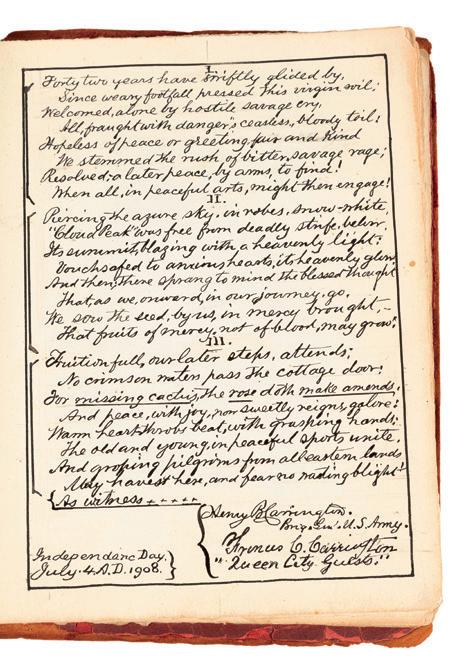 I
Forty two years have swiftly glided by,
Since weary footfall pressed this virgin soil;
Welcomed, alone by hostile savage cry,
All, fraught with danger's ceaseless, bloody toil!
Hopeless of peace or greeting, fair and kind
We stemmed the rush of bitter, savage rage;
Resolved; a later peace, by arms, to find!
When all, in peaceful arts, might then engage!
II.
Piercing the azure sky, in robes, snow-white,
"Cloud Peak" was free from deadly strife, below.
Its summit, blazing with a heavenly light;
Vouchsafed to anxious hearts, its heavenly glow,
And then, there sprang to mind the blessed thought
That, as we, onward, in our journey, go,
We sow the seed, by us, in mercy brought,-
That fruits of mercy, not of blood, may grow!
III.
Fruition full, our later steps, attends;
No crimson waters pass the cottage door!
For missing cactus, the rose doth make amends,
And peace, with joy, now sweetly reigns, galore;
Warm heart-throbs beat, with grasping hands;
The old and young, in peaceful sports unite,
And groping pilgrims from all eastern lands
May harvest here, and fear no blight!
As witness
Henry B. Carrington.
Brig. Gen'l. U.S. Army.
Frances C. Carrington
"Queen City Guests."
Independanc Day.
July. 4. A.D. 1908.